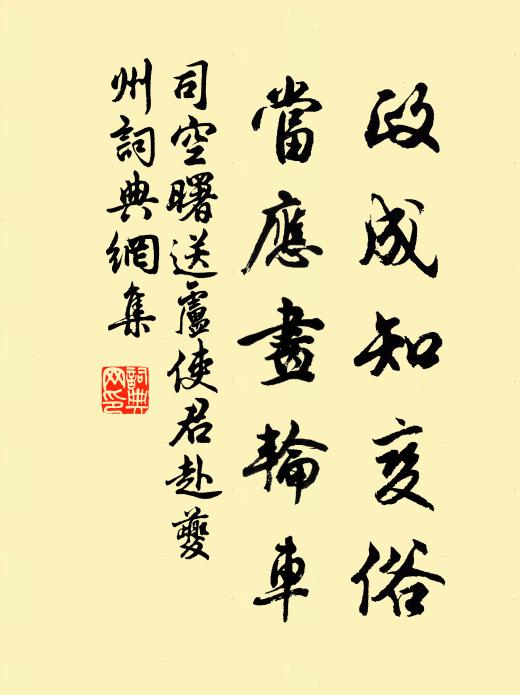 政成知变俗
當應畫輪車
司空曙送盧使君赴夔
州詞典網集
詞典
网印